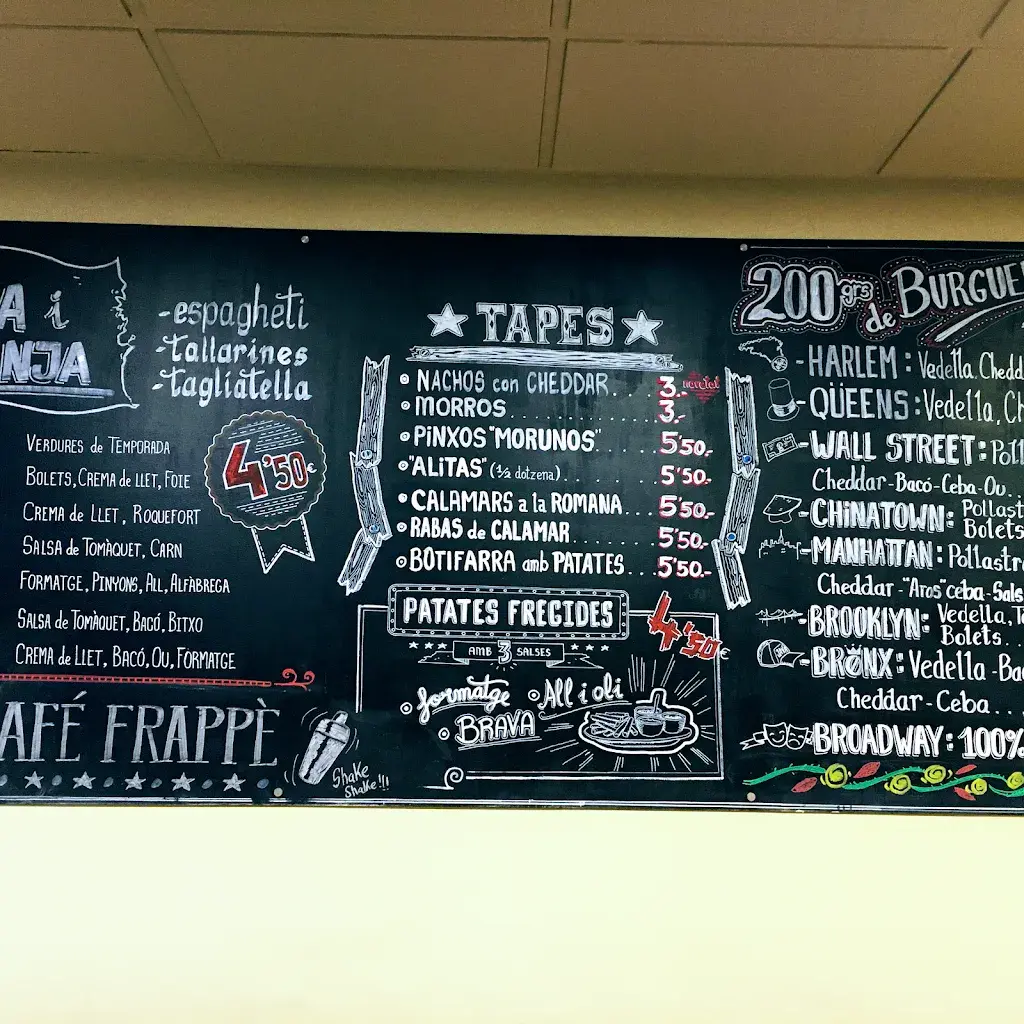 A i
NJA
-espagheti
-tallarines
-tagliatella
VERDURES de TEMPORADA
BOLETS, CREMA de LLET, FOIE
CREMA de LLET, ROQUEFORT
SALSA de TOMÀQUET, CARN
FORMATGE, PINYONS, ALL, ALFÀBREGA
SALSA de TOMÀQUET, BACÓ, BITXO
CREMA de LLET, BACÓ, OU, FORMATGE
4'50€
AFÉ FRAPPÈ
Shake
Shake!!!
TAPES
NACHOS con CHEDDAR.... 3.-
MORROS................ 3.-
PiNXOS "MORUNOS"...... 5'50.-
"ALiTAS" (½ dotzena)...... 5'50.-
CALAMARS a la ROMANA... 5'50.-
RABAS de CALAMAR...... 5'50.-
BOTIFARRA amb PATATES... 5'50.-
PATATES FREGIDES
4'50€
AMB 3 SALSES
formatge
All i oli
BRAVA
200grs de BURGUE
-HARLEM: Vedella, Chedd
-QÜEENS: Vedella, Ch
-WALL STREET: Poll
Cheddar-Bacó-Ceba-Ou.
-CHiNATOWN: Pollast
Bolets
-MANHATTAN: Pollastr
Cheddar-"Aros"ceba-Sals
-BROOKLYN: Vedella, To
Bolets...
-BRONX: Vedella-Ba
Cheddar-Ceba...
BROADWAY: 100%